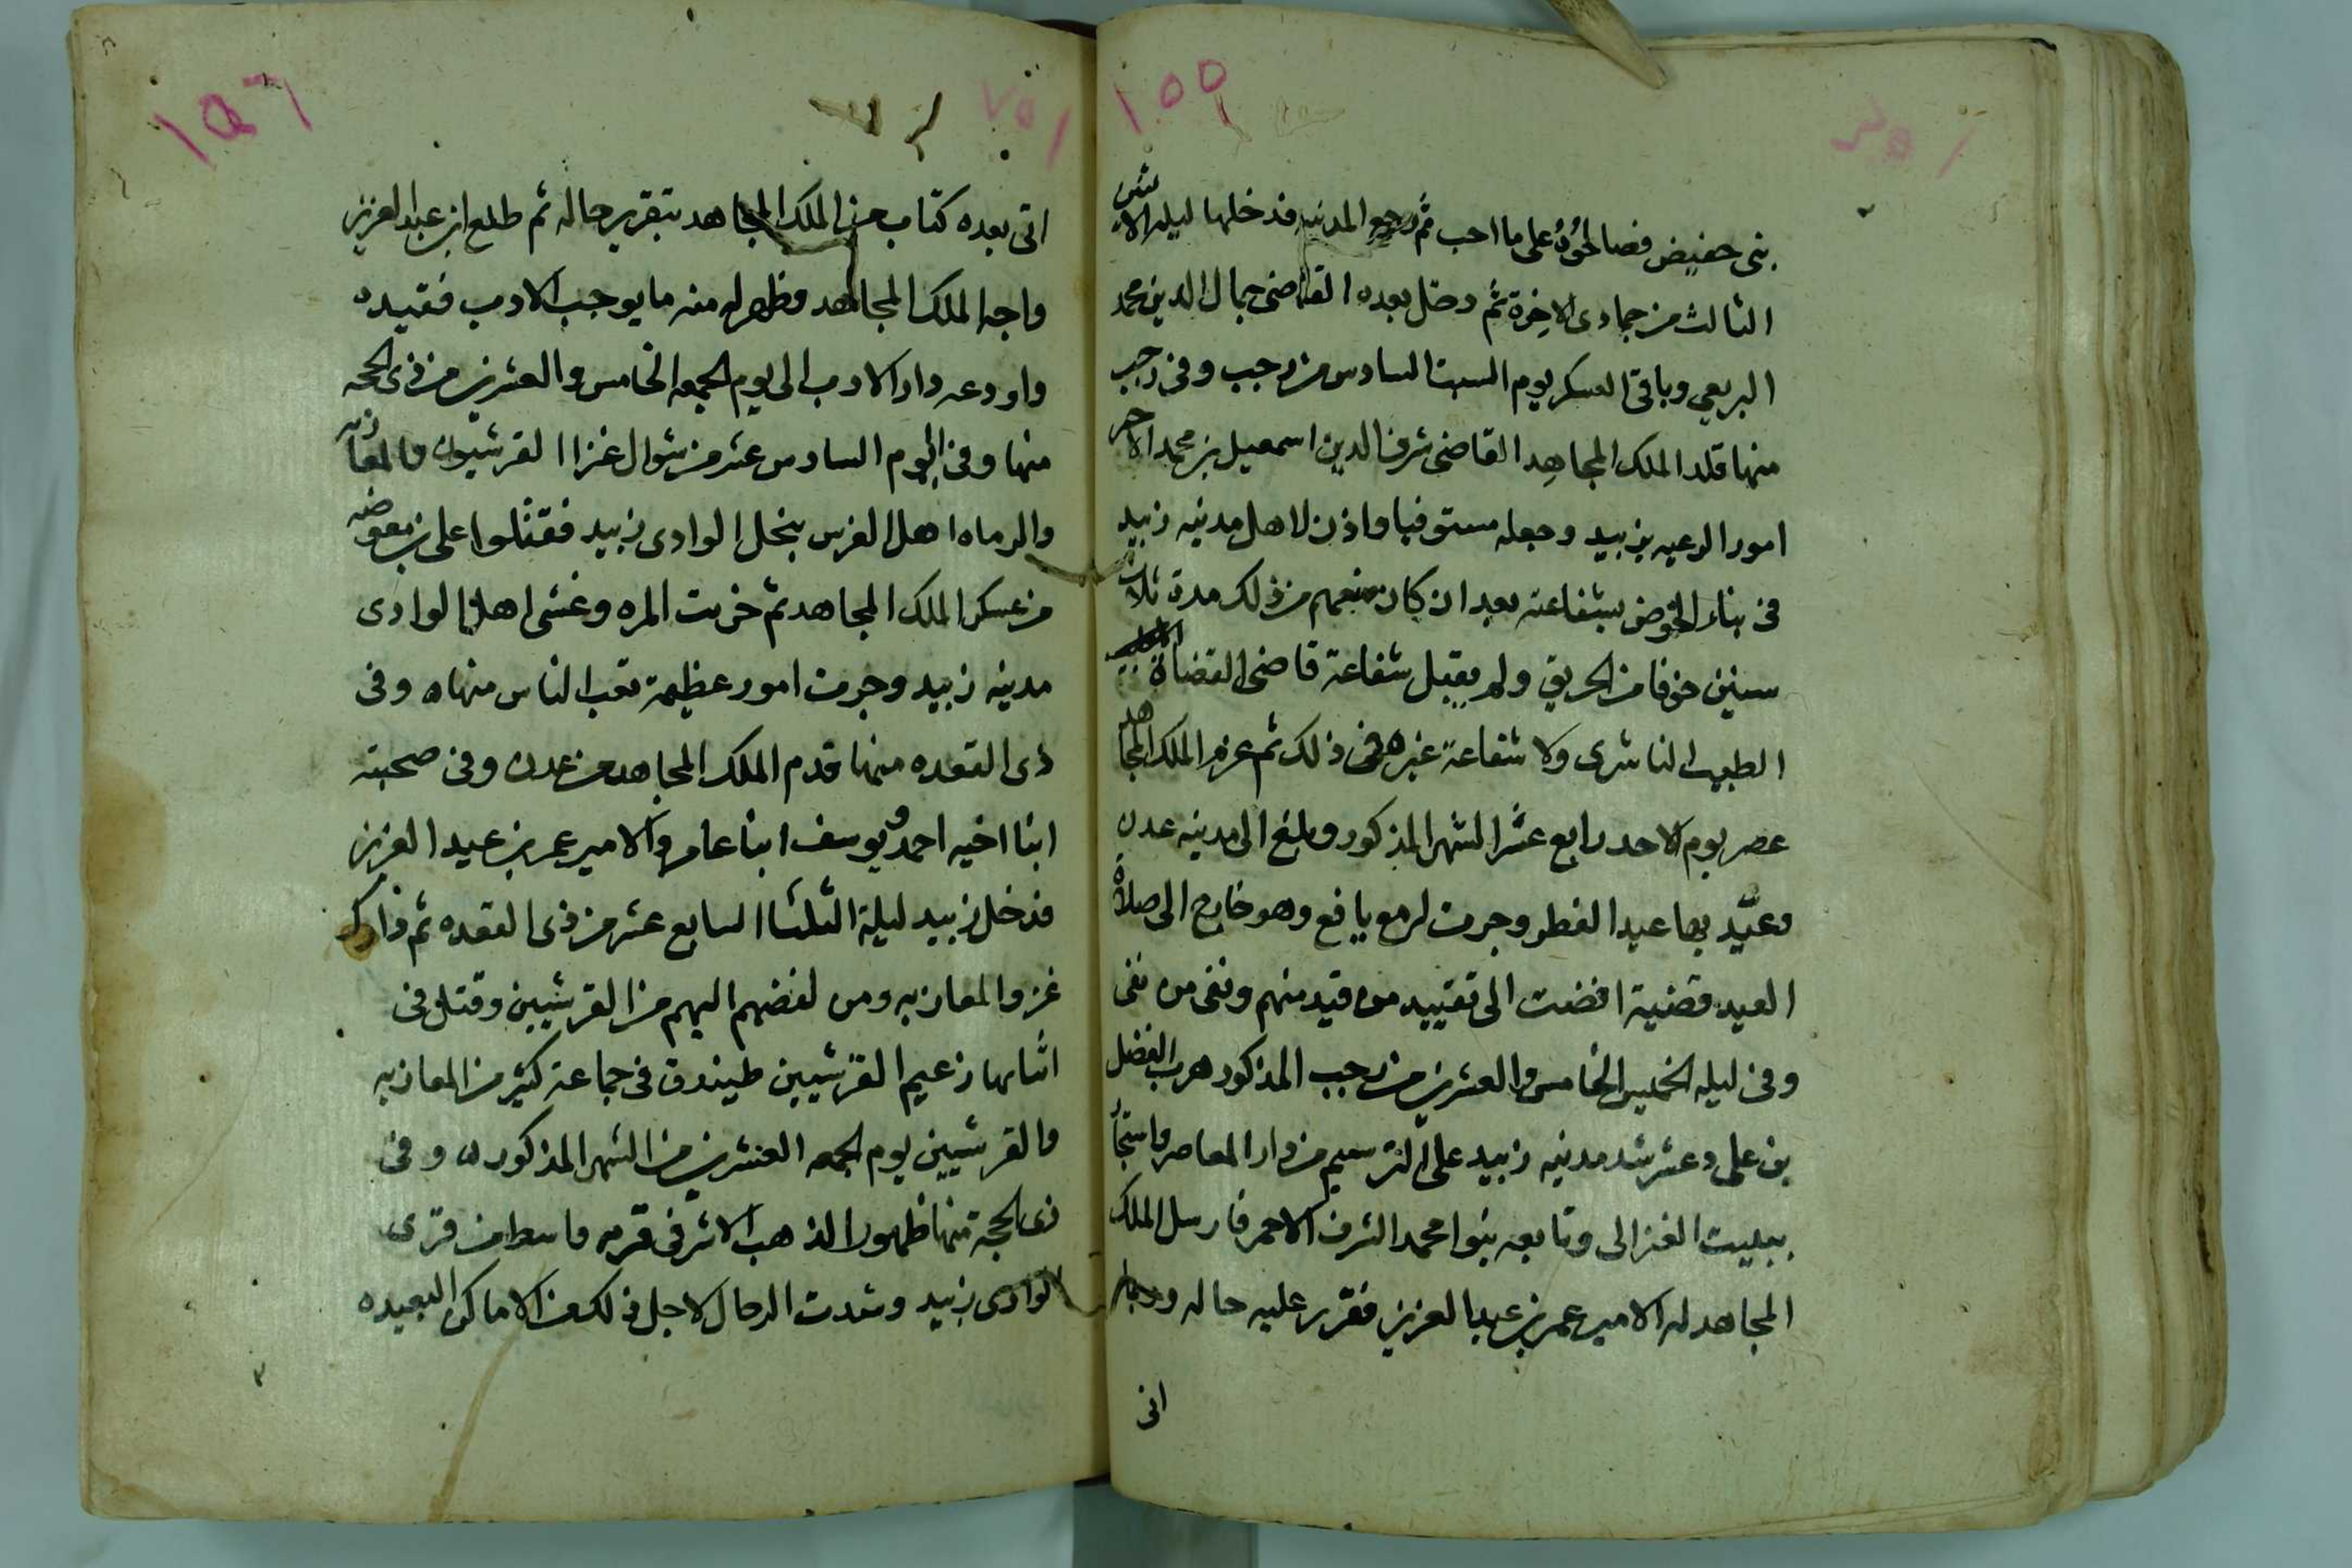 ١٥٥
بنى حفيص فصالحوُهُ على ما احب ثم رجع المدينه فدخلها ليله الاثنين
الثالث من جمادى الاخرة ثم دخل بعده القاضى جمال الدين محمد
البريعي وباقى العسكر يوم السبت السادس من رجب وفى رجب
منها قلد الملك المجاهد القاضى شرف الدين اسمعيل بن محمد الاحمر
امور الرعيه بزبيد وجعله مستوفيا واذن لاهل مدينه زبيد
فى بناء الخوص بشفاعته بعد ان كان منعهم من ذلك مدة ثلاث
سنين خوفا من الحريق ولم يقبل شفاعة قاضى القضاة
الطيب الناشرى ولا شفاعة غيره فى ذلك ثم عزم الملك المجاهد
عصر يوم الاحد رابع عشر الشهر المذكور وبلغ الى مدينه عدن
وعيّد بها عيد الفطر وجرت له مع يافع وهو خارج الى صلاة
العيد قضية افضت الى تقييد من قيد منهم ونفى من نفى
وفى ليله الخميس الخامس والعشرين من رجب المذكور هرب الفضل
بن على دعشر شد مدينه زبيد على الترسيم من دار المعاصر واستجأ
ببيت الغزالى وتابعه بنوا محمد الشرف الاحمر فارسل الملك
المجاهد له الامير عمر بن عبد العزيز فقرر عليه حاله
اتى
١٥٦
اتى بعده كتاب من الملك المجاهد بتقرير حاله ثم طلع ابن عبد العزيز
واجه الملك المجاهد وظهر له منه ما يوجب الادب فقيده
واودعه دار الادب الى يوم الجمعه الخامس والعشرين من ذى الحجه
منها وفى اليوم السادس عشر من شوال غزا القرشيون والمعازبه
والرماه اهل الغرس بنخل الوادى زبيد فقتلوا على بن معوضه
من عسكر الملك المجاهد ثم خربت المره وغشى اهل الوادى
مدينه زبيد وجرت امور عظيمة تعب الناس منها وفى
ذى القعده منها قدم الملك المجاهد من عدن وفى صحبته
ابنا اخيه احمد و يوسف ابنا عامر والامير عمر بن عبد العزيز
فدخل زبيد ليلة الثلثا السابع عشر من ذى القعده ثم دارك
غزو المعازبه ومن لفضهم اليهم من القرشيين وقتل فى
اثنايها زعيم القرشيين طيندوق فى جماعة كثير من المعازبه
والقرشيين يوم الجمعه العشرين من الشهر المذكور وفى
ذى الحجة منها ظهور الذهب الاشرفى قريه واسط من قرى
الوادى زبيد وشدت الرحال لاجل ذلك من الاماكن البعيده